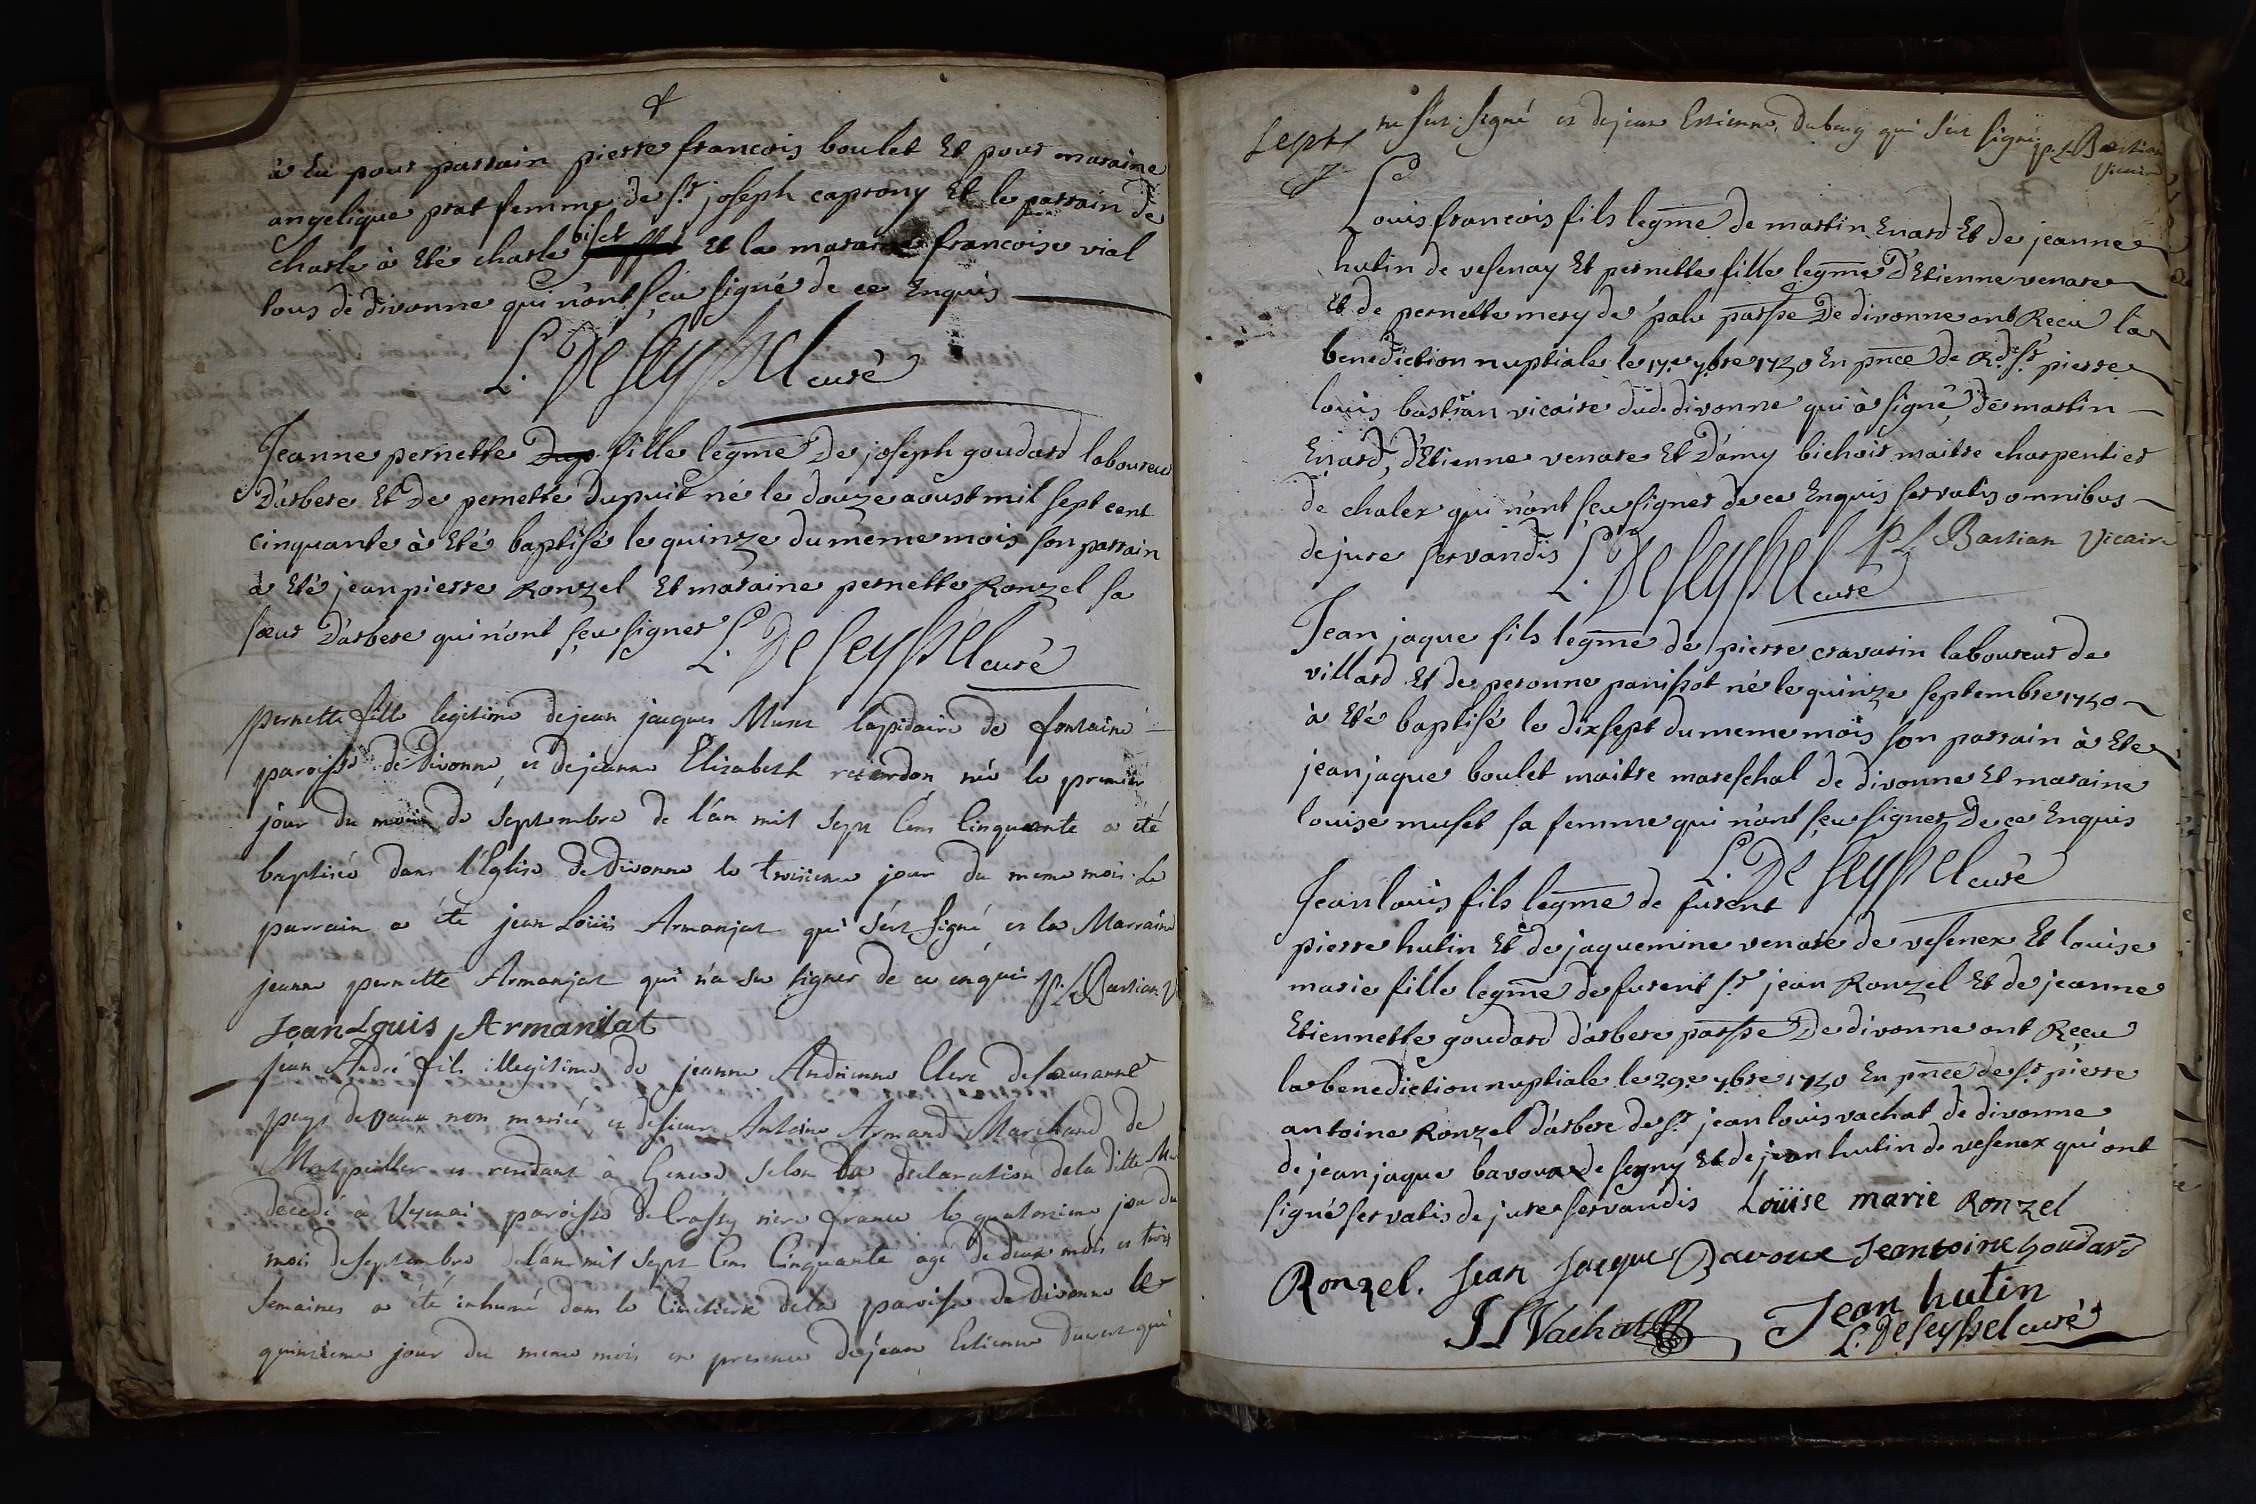 à Eu pour parrain pierre francois boulet Et pour maraine
angelique prat femme de Sr joseph caprony Et le parrain de
charle à Eté charle biset Et la maraine francoise vial
tous de divonne qui n'ont sçu signé de ce Enquis
L. De Seyssel curé
Jeanne pernette fille legme De joseph goudard laboureur
D'arbere Et De pernette Dupuit né le douze aoust mil sept cent
cinquante à Eté baptisé le quinze du même mois son parrain
à Eté jean pierre Ronzel Et maraine pernette Ronzel sa
sœur D'arbere qui n'ont sçu signer L. De Seyssel curé
pernette fille legitime de jean jacques Muset lapidaire de fontaine
paroisse de Divonne et de jeanne Elizabeth reverdon née le premier
jour du mois de Septembre de l'an mil Sept Cens Cinquante a été
baptisée dans l'Eglise de Divonne le troisieme jour du meme mois. Le
parrain a été jean Loüis Armanjat qui s'est signé et la Marraine
jeanne pernette Armanjat qui n'a su signer de ce enquis P. L. Bastian V
Jean Louis Armaniat
jean André fils illegitime de jeanne Andrienne Clerc de Lausanne
pays de vaux non mariée et de sieur Antoine Armand Marchand de
Montpellier et rendant à Geneve selon la declaration de la ditte
decedé à paroisse de Crassy riere france le quatorzieme jour du
mois de Septembre de l'an mil Sept Cens Cinquante agé de deux mois et trois
Semaines a été inhumé dans le Cimetiere de la paroisse de divonne le
quinzieme jour du meme mois en presence de jean Estienne qui
Sept
ne s'est signé et de jean Estienne Dubouy qui s'est signé P. L. Bastian
Vicaire
Louis francois fils legme de martin Enard Et de jeanne
hutin de vesenay Et pernette fille legme D'Etienne venare
Et de pernette mery de palu parsse De divonne ont Recu la
benediction nuptiale le 17e 7bre 1750 En pnce de Rd Sr pierre
louis bastian vicaire dud. divonne qui à signé, de martin
Enard, d'Etienne venare Et D'amy bichoir maitre charpentier
de chalex qui n'ont sçu signer de ce Enquis servatis omnibus
de jure servandis L. De Seyssel curé P L Bastian Vicaire
Jean jaque fils legme de pierre cravarin laboureur de
villard Et de peronne panissot né le quinze septembre 1750
à Eté baptisé le dixsept du meme mois son parrain à Ete
jean jaque boulet maitre mareschal de divonne Et maraine
louise muset sa femme qui n'ont sçu signer De ce Enquis
L. De Seyssel curé
Jean louis fils legme de furent
pierre hutin Et de jaquemine venare de vesenex Et louise
marie fille legme de furent Sr jean Ronzel Et de jeanne
Etiennette goudard d'arbere parsse De divonne ont Recu
la benediction nuptiale le 29e 7bre 1750 En pnce de Sr pierre
antoine Ronzel d'arbere de Sr jean louis vachat de divonne
de jean jaque bavoux de segny Et de jean hutin de vesenex qui ont
signé servatis de jure servandis Loüise marie Ronzel
Ronzel. Jean Jacque Bavoux Jeantoine goudard
J L Vachat Jean hutin
L. De Seyssel curé